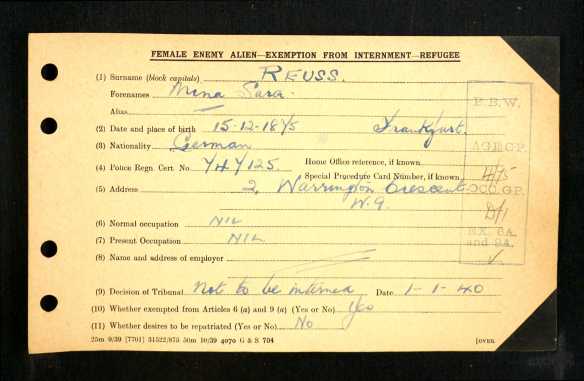 FEMALE ENEMY ALIEN—EXEMPTION FROM INTERNMENT—REFUGEE
(1) Surname (block capitals) REUSS.
Forenames Mina Sara.
Alias —
(2) Date and place of birth 15-12-1875 Frankfurt.
(3) Nationality German
(4) Police Regn. Cert. No. 747125. Home Office reference, if known
Special Procedure Card Number, if known
(5) Address 2, Warrington Crescent
W.9.
(6) Normal occupation NIL
(7) Present Occupation NIL
(8) Name and address of employer
(9) Decision of Tribunal Not to be interned Date 1-1-40
(10) Whether exempted from Articles 6 (a) and 9 (a) (Yes or No) Yes
(11) Whether desires to be repatriated (Yes or No) No
25m 9/39 [7701] 31522/875 50m 10/39 4070 G & S 704 [OVER
AGE GP.
OCC. GP.
D/1
EX. 6A.
and 9A.